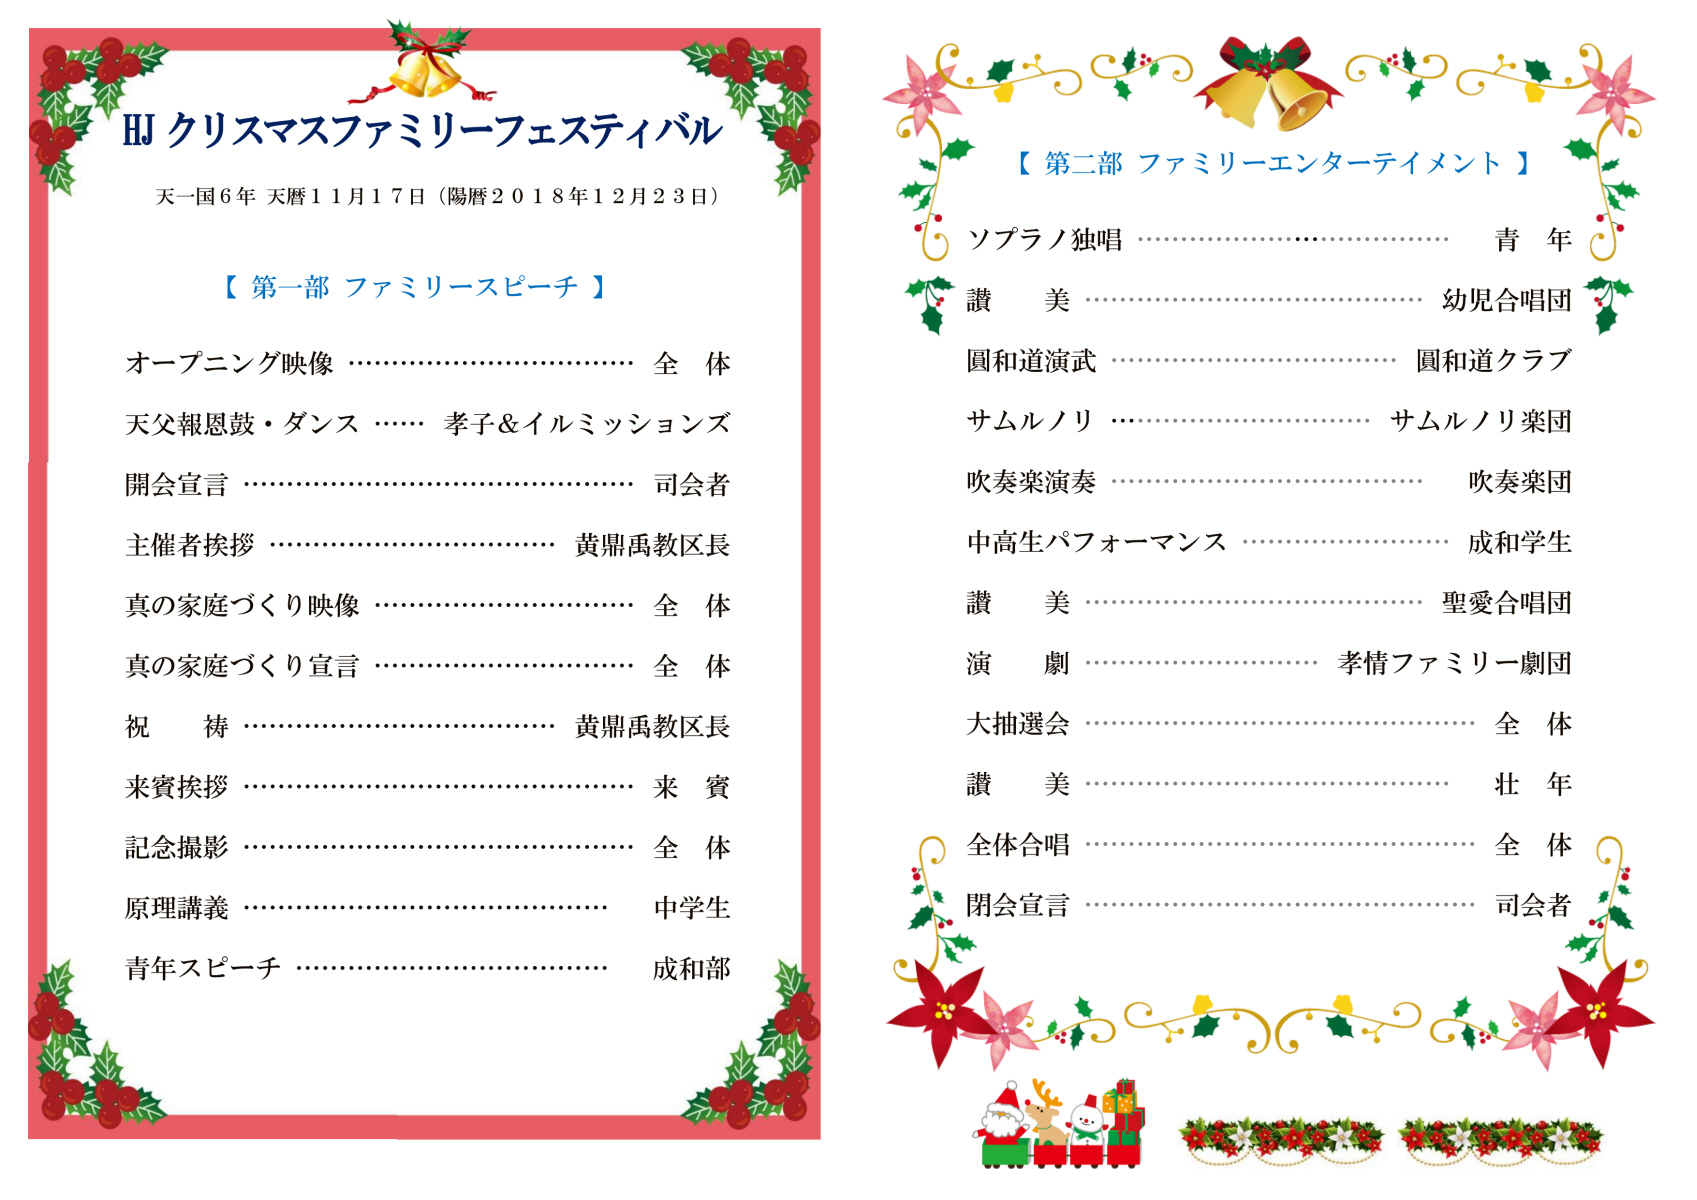 HJ クリスマスファミリーフェスティバル
天一国６年 天暦１１月１７日（陽暦２０１８年１２月２３日）
【 第一部 ファミリースピーチ 】
オープニング映像 ……………………………… 全　体
天父報恩鼓・ダンス …… 孝子＆イルミッションズ
開会宣言 ………………………………………… 司会者
主催者挨拶 ……………………………… 黄鼎禹教区長
真の家庭づくり映像 …………………………… 全　体
真の家庭づくり宣言 …………………………… 全　体
祝　　祷 ………………………………… 黄鼎禹教区長
来賓挨拶 ………………………………………… 来　賓
記念撮影 ………………………………………… 全　体
原理講義 ……………………………………… 中学生
青年スピーチ ………………………………… 成和部
【 第二部 ファミリーエンターテイメント 】
ソプラノ独唱 ………………………………… 青　年
讃　　美 …………………………………… 幼児合唱団
圓和道演武 ……………………………… 圓和道クラブ
サムルノリ …………………………… サムルノリ楽団
吹奏楽演奏 ………………………………… 吹奏楽団
中高生パフォーマンス ……………………… 成和学生
讃　　美 …………………………………… 聖愛合唱団
演　　劇 ………………………… 孝情ファミリー劇団
大抽選会 ………………………………………… 全　体
讃　　美 ……………………………………… 壮　年
全体合唱 ………………………………………… 全　体
閉会宣言 ………………………………………… 司会者